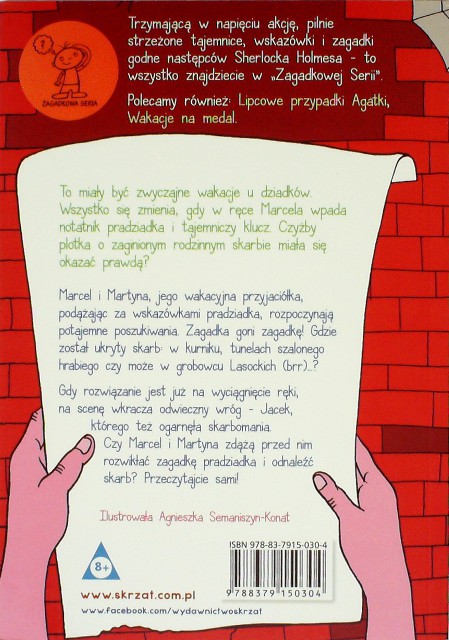 ZAGADKOWA SERIA
Trzymającą w napięciu akcję, pilnie
strzeżone tajemnice, wskazówki i zagadki
godne następców Sherlocka Holmesa - to
wszystko znajdziecie w „Zagadkowej Serii".
Polecamy również: Lipcowe przypadki Agatki,
Wakacje na medal.
To miały być zwyczajne wakacje u dziadków.
Wszystko się zmienia, gdy w ręce Marcela wpada
notatnik pradziadka i tajemniczy klucz. Czyżby
plotka o zaginionym rodzinnym skarbie miała się
okazać prawdą?
Marcel i Martyna, jego wakacyjna przyjaciółka,
podążając za wskazówkami pradziadka, rozpoczynają
potajemne poszukiwania. Zagadka goni zagadkę! Gdzie
został ukryty skarb: w kurniku, tunelach szalonego
hrabiego czy może w grobowcu Lasockich (brr)...?
Gdy rozwiązanie jest już na wyciągnięcie ręki,
na scenę wkracza odwieczny wróg - Jacek,
którego też ogarnęła skarbomania.
Czy Marcel i Martyna zdążą przed nim
rozwikłać zagadkę pradziadka i odnaleźć
skarb? Przeczytajcie sami!
Ilustrowała Agnieszka Semaniszyn-Konat
8+
www.skrzat.com.pl
www.facebook.com/wydawnictwoskrzat
ISBN 978-83-7915-030-4
9 788379 150304